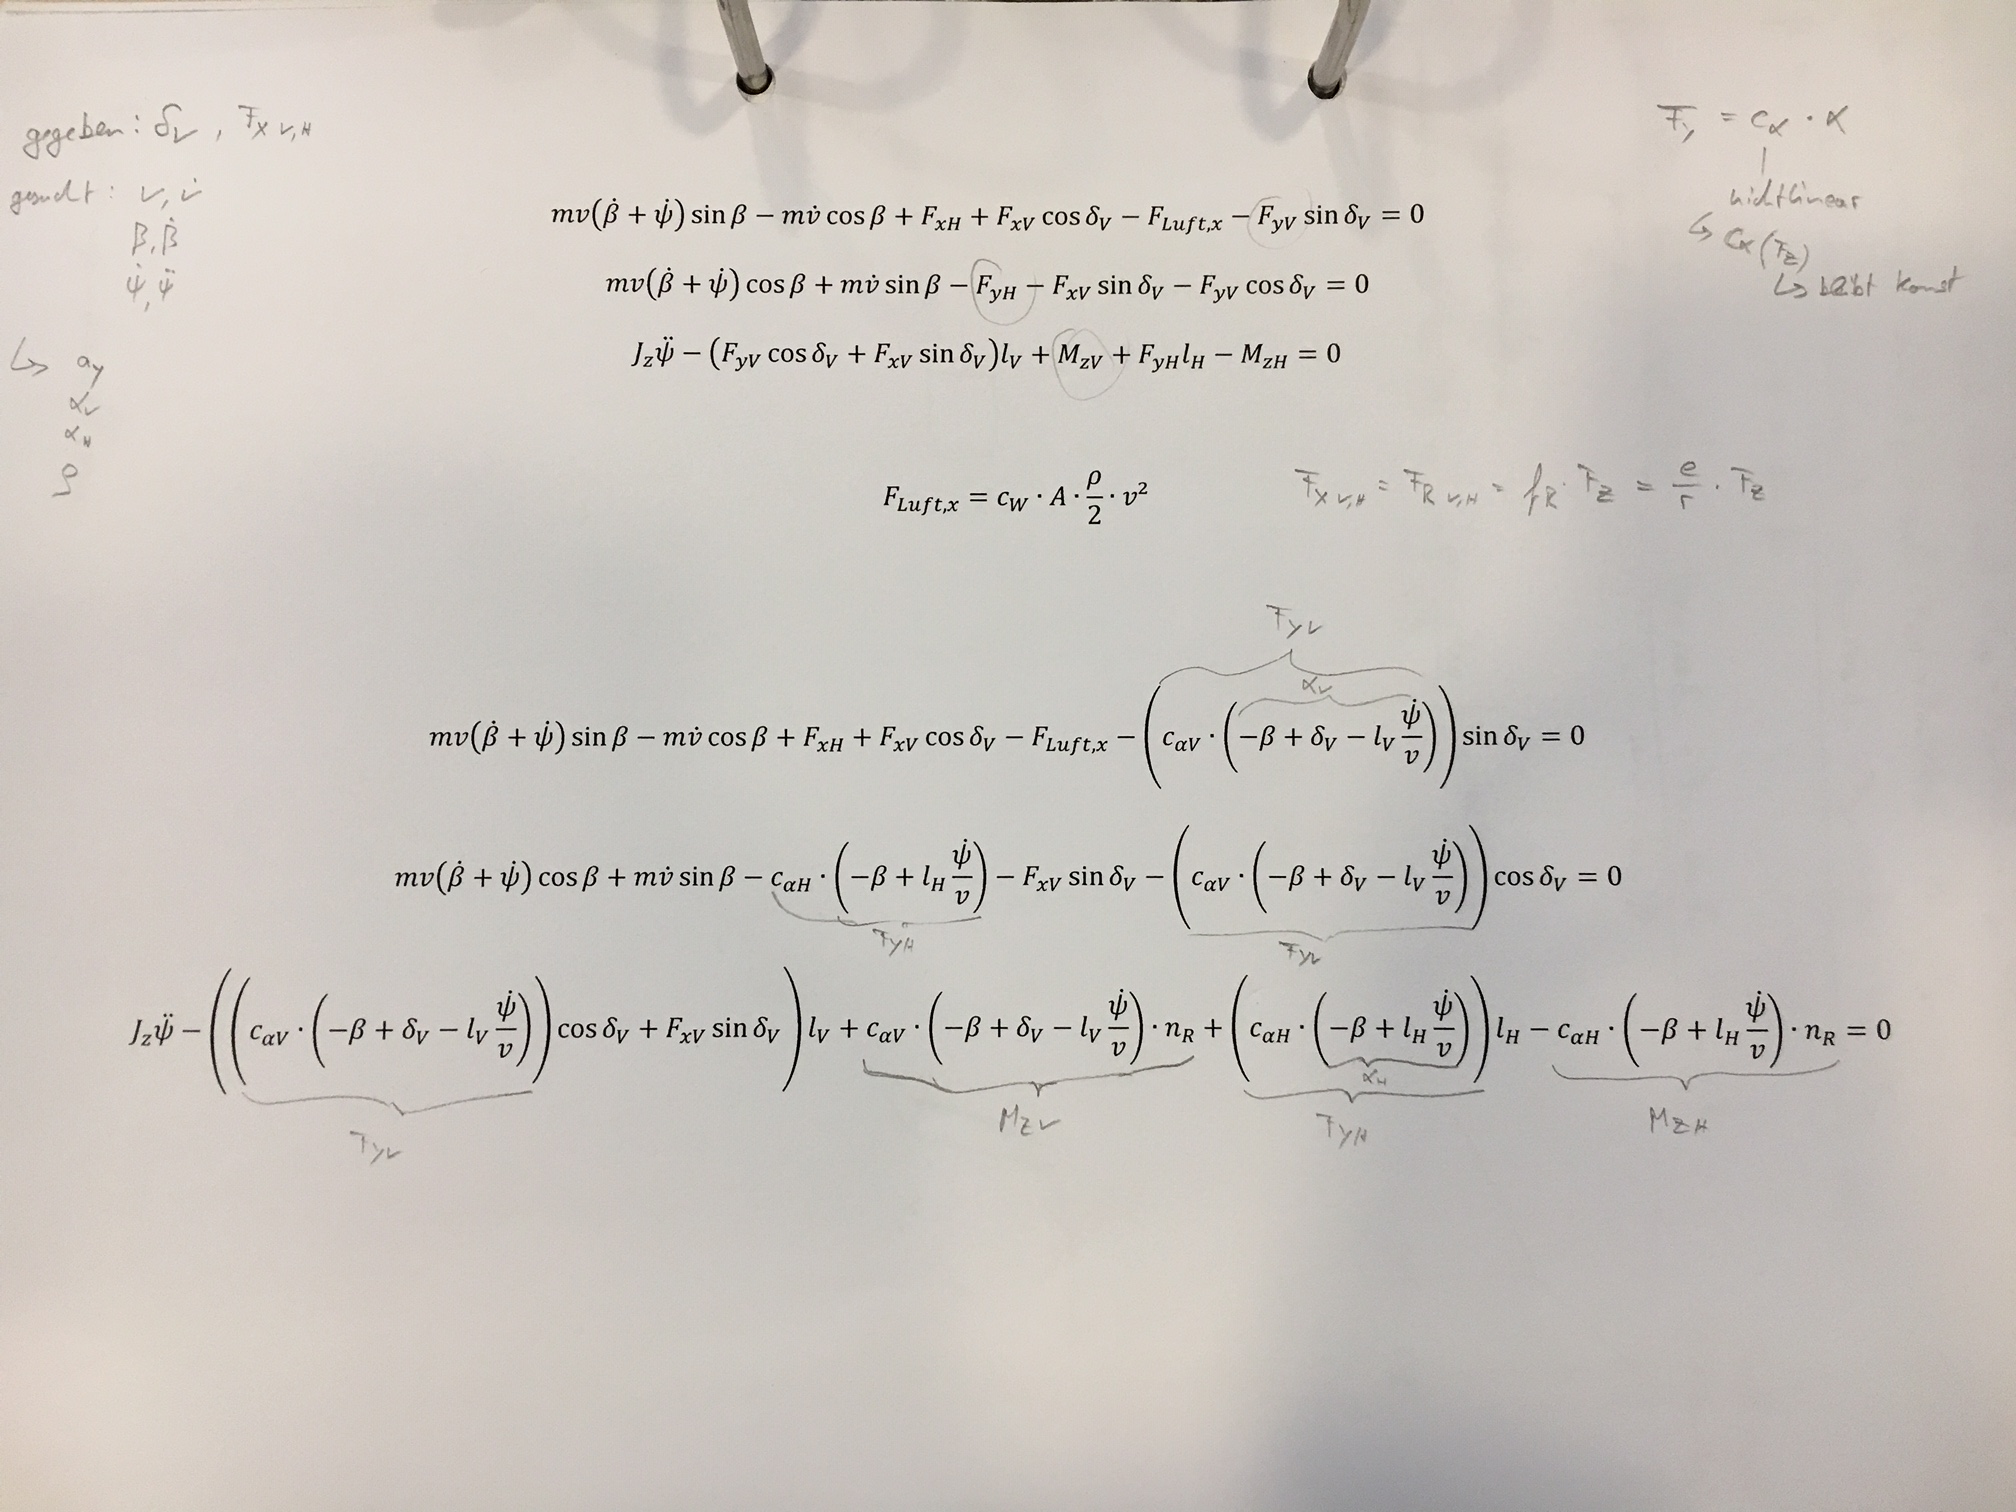 gegeben: δ_V , F_x V,H
gesucht: v, v̇
β, β̇
ψ̇, ψ̈
↳ a_y
α_V
α_H
ρ
F_y = c_α · α
nichtlinear
↳ c_α(F_z)
↳ bleibt konst
mv(β̇ + ψ̇) sin β − mv̇ cos β + F_xH + F_xV cos δ_V − F_Luft,x − F_yV sin δ_V = 0
mv(β̇ + ψ̇) cos β + mv̇ sin β − F_yH − F_xV sin δ_V − F_yV cos δ_V = 0
J_z ψ̈ − (F_yV cos δ_V + F_xV sin δ_V)l_V + M_zV + F_yH l_H − M_zH = 0
F_Luft,x = c_W · A · ρ/2 · v²
F_x V,H = F_R V,H = f_R · F_z = e/r · F_z
F_yV
α_V
mv(β̇ + ψ̇) sin β − mv̇ cos β + F_xH + F_xV cos δ_V − F_Luft,x − (c_αV · (−β + δ_V − l_V ψ̇/v)) sin δ_V = 0
mv(β̇ + ψ̇) cos β + mv̇ sin β − c_αH · (−β + l_H ψ̇/v) − F_xV sin δ_V − (c_αV · (−β + δ_V − l_V ψ̇/v)) cos δ_V = 0
F_yH F_yV
J_z ψ̈ − ((c_αV · (−β + δ_V − l_V ψ̇/v)) cos δ_V + F_xV sin δ_V) l_V + c_αV · (−β + δ_V − l_V ψ̇/v) · n_R + (c_αH · (−β + l_H ψ̇/v)) l_H − c_αH · (−β + l_H ψ̇/v) · n_R = 0
α_H
F_yV M_zV F_yH M_zH